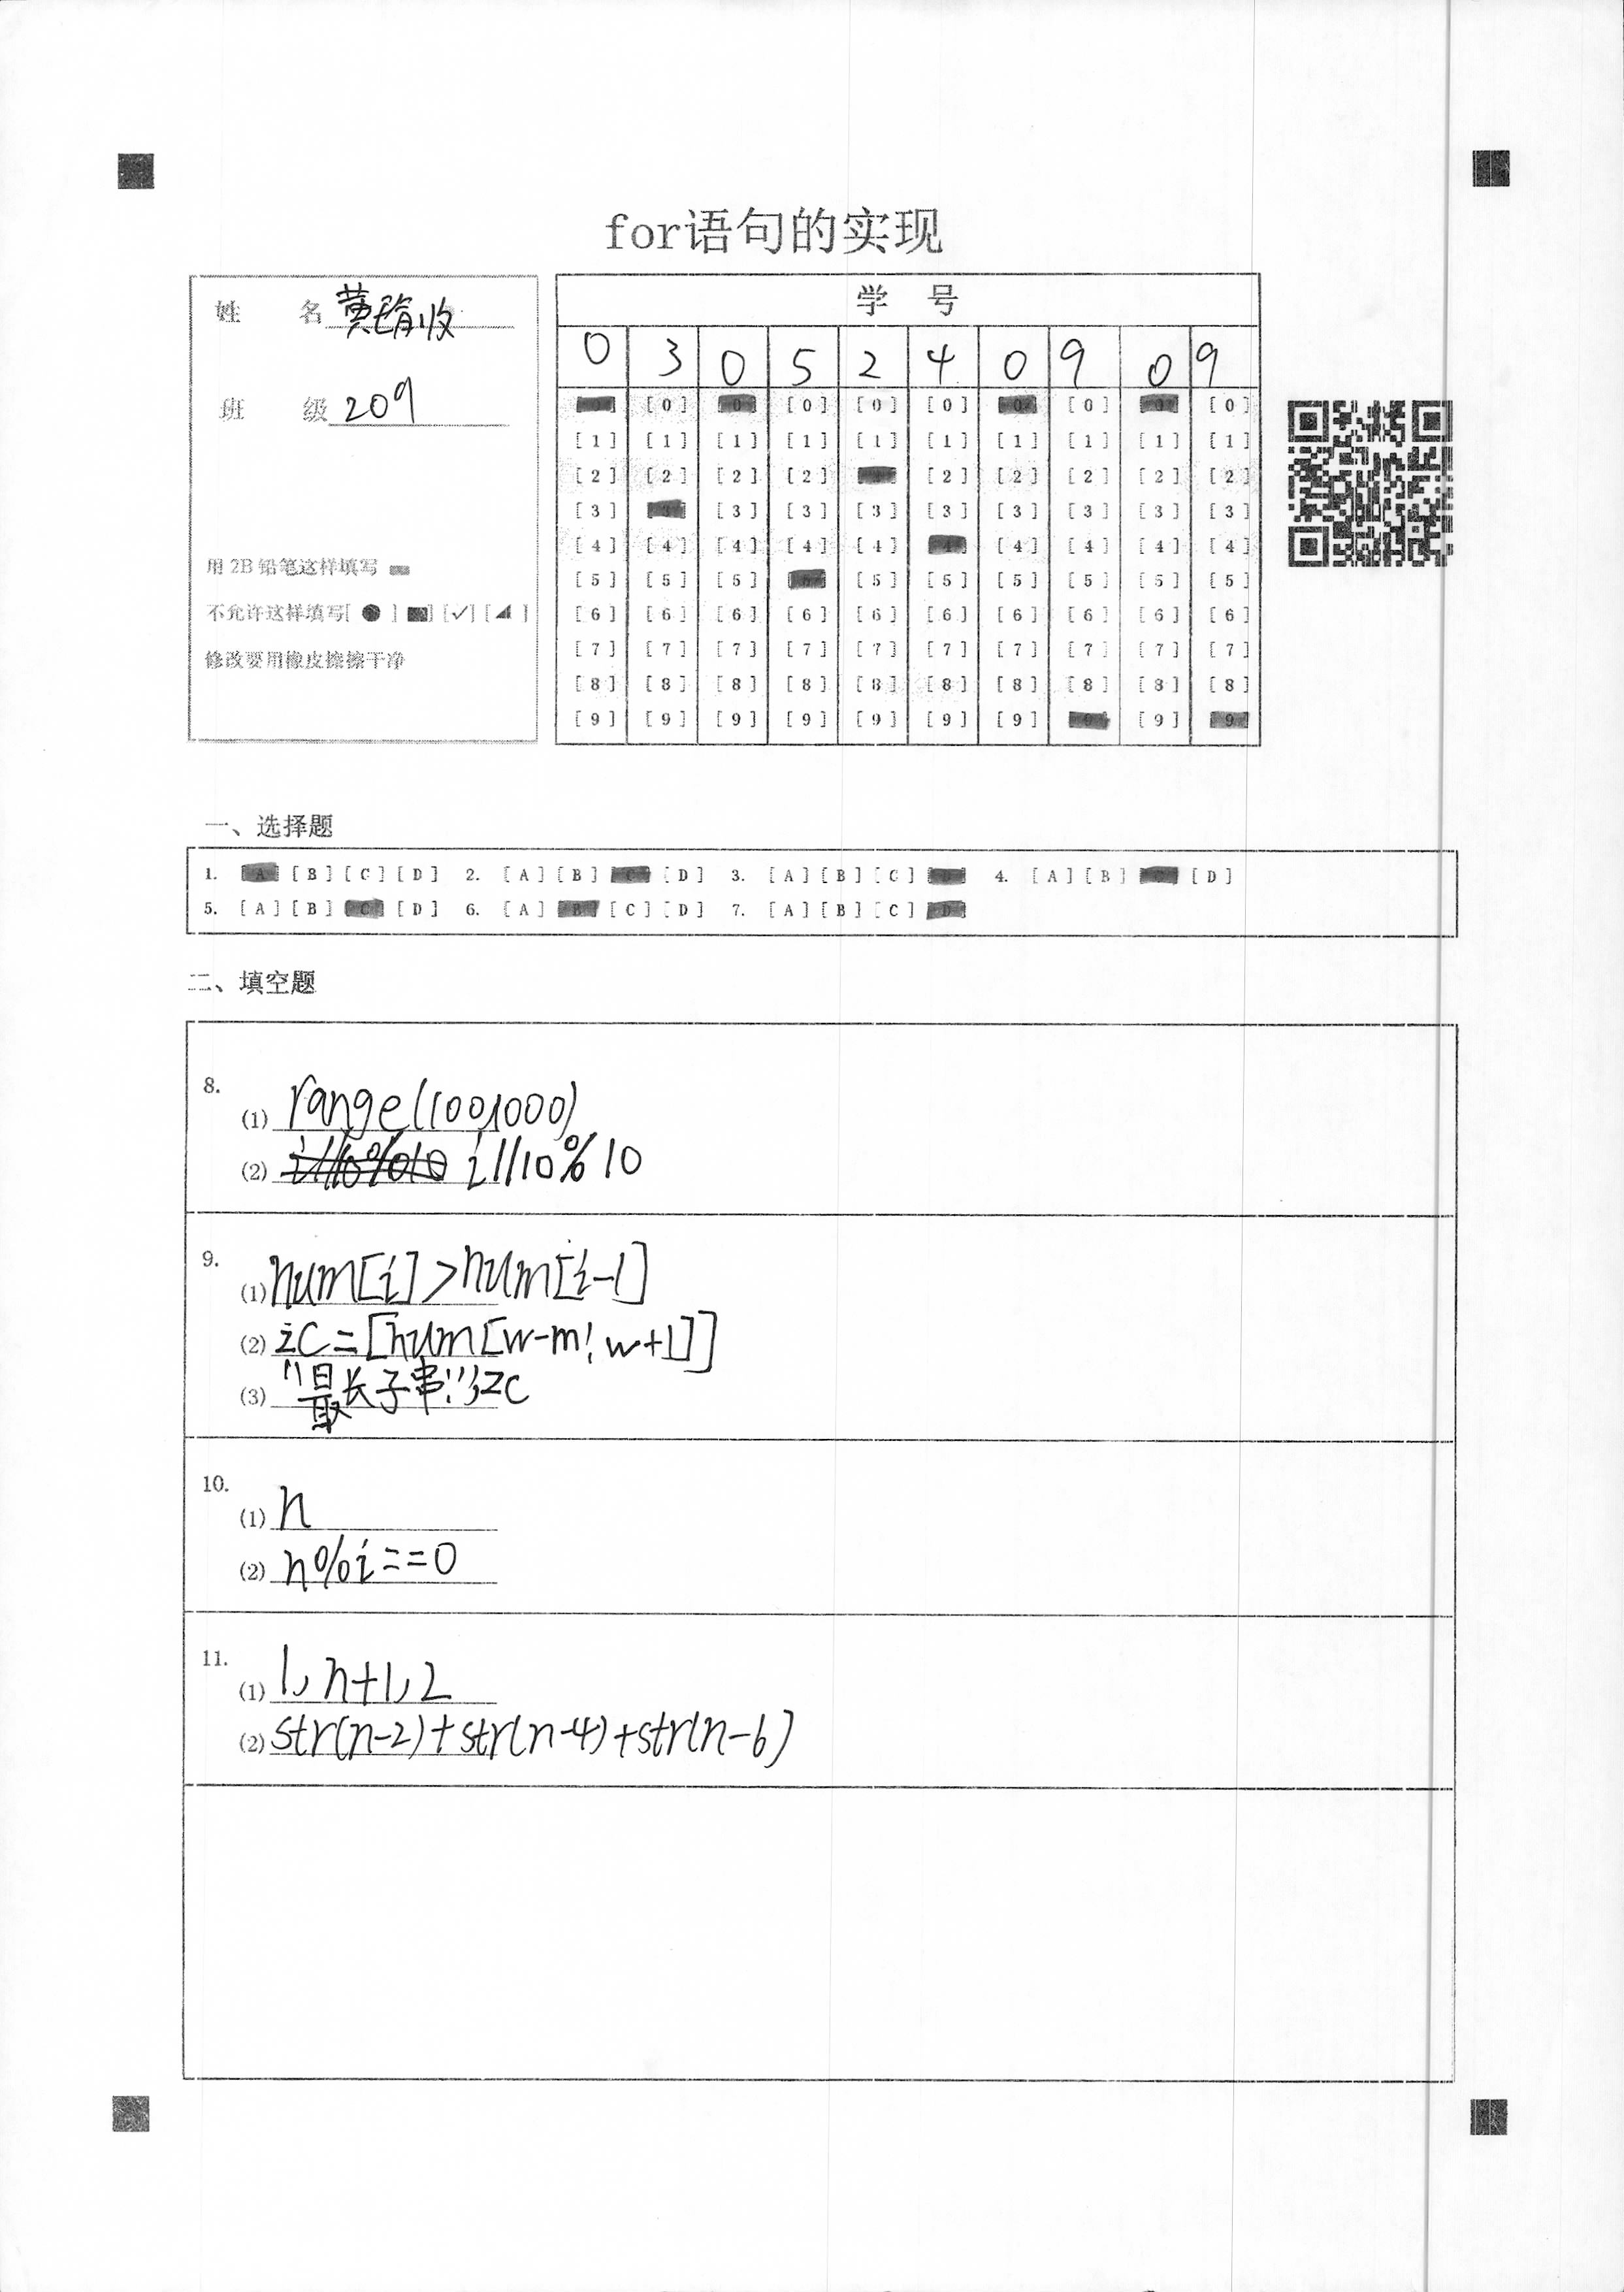 for语句的实现
姓 名 黄
班 级 209
用 2B 铅笔这样填写
不允许这样填写[ ● ] [■] [✓] [◢ ]
修改要用橡皮擦擦干净
学 号
0 3 0 5 2 4 0 9 0 9
[0] [0] [0] [0] [0] [0] [0] [0] [0] [0]
[1] [1] [1] [1] [1] [1] [1] [1] [1] [1]
[2] [2] [2] [2] [2] [2] [2] [2] [2]
[3] [3] [3] [3] [3] [3] [3] [3] [3] [3]
[4] [4] [4] [4] [4] [4] [4] [4] [4] [4]
[5] [5] [5] [5] [5] [5] [5] [5] [5] [5]
[6] [6] [6] [6] [6] [6] [6] [6] [6] [6]
[7] [7] [7] [7] [7] [7] [7] [7] [7] [7]
[8] [8] [8] [8] [8] [8] [8] [8] [8] [8]
[9] [9] [9] [9] [9] [9] [9] [9] [9] [9]
一、选择题
1. [A] [B] [C] [D] 2. [A] [B] [C] [D] 3. [A] [B] [C] [D] 4. [A] [B] [C] [D]
5. [A] [B] [C] [D] 6. [A] [B] [C] [D] 7. [A] [B] [C] [D]
二、填空题
8.
(1) range(100,1000)
(2) i//10%10 i//10%10
9.
(1) num[i]>num[i-1]
(2) zc=[num[w-m:w+1]]
(3) "最长子串:",zc
10.
(1) n
(2) n%i==0
11.
(1) 1,n+1,2
(2) str(n-2)+str(n-4)+str(n-6)